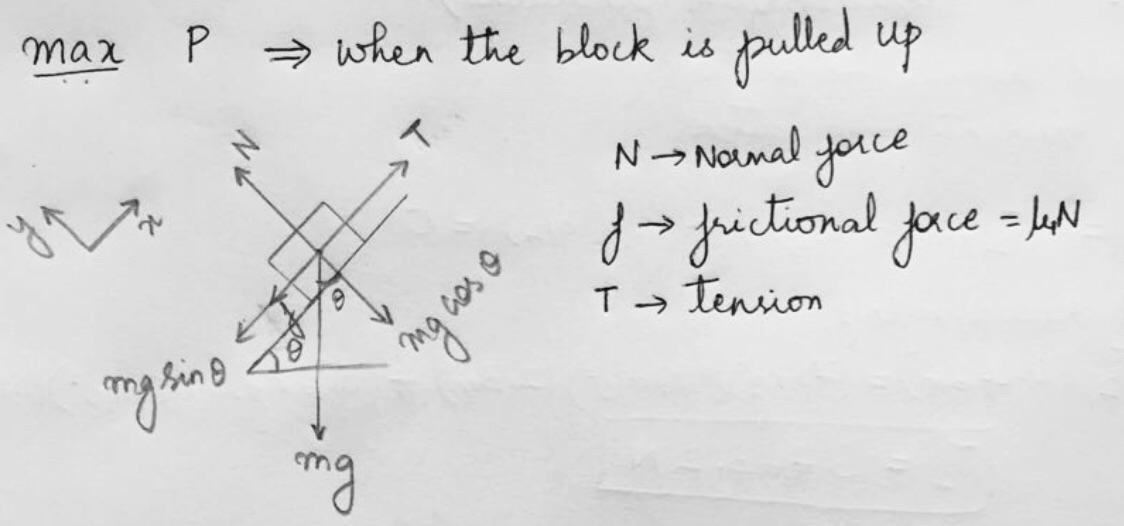 max P ⇒ when the block is pulled up
N T
N → Normal force
y x
f → frictional force = μN
θ
T → tension
f
θ mg cos θ
mg sin θ
mg